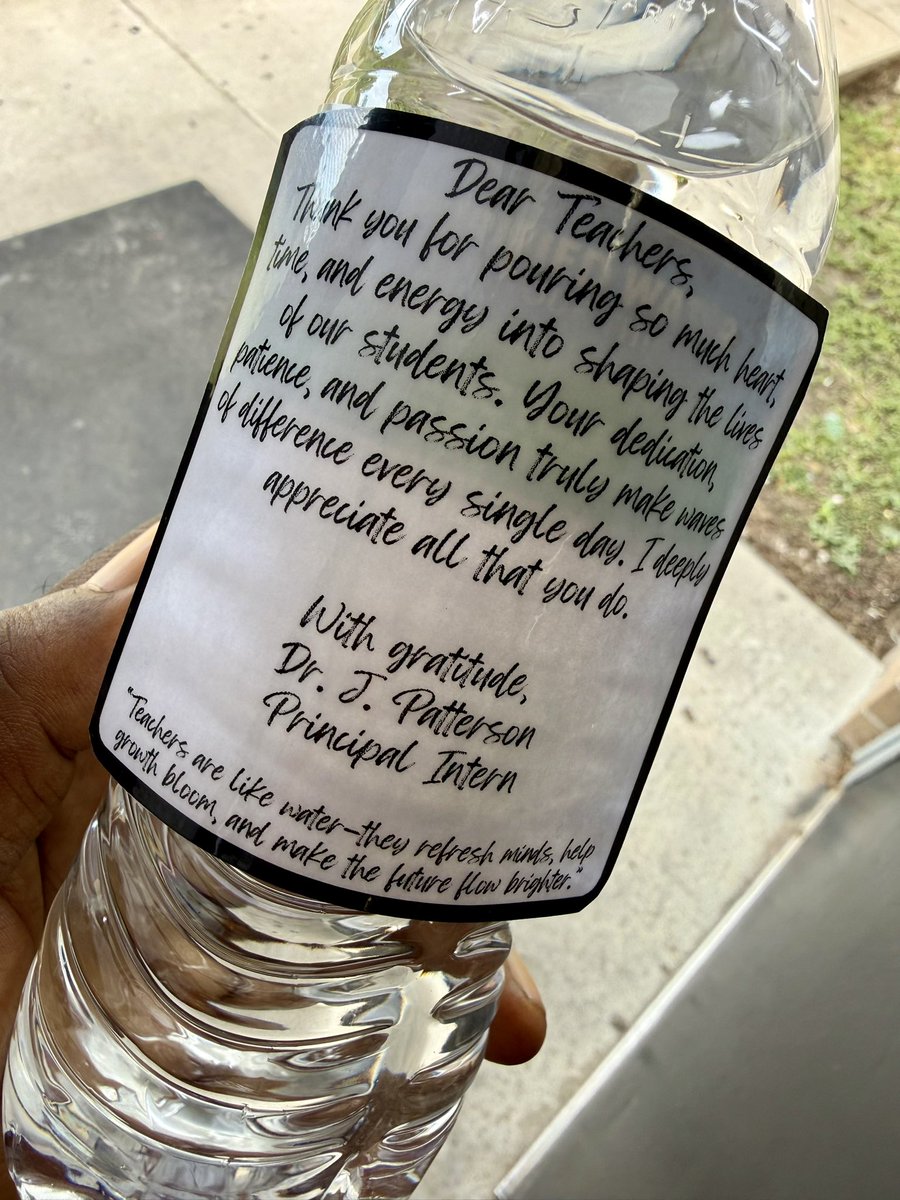 Dear Teachers,
Thank you for pouring so much heart,
time, and energy into shaping the lives
of our students. Your dedication,
patience, and passion truly make waves
of difference every single day. I deeply
appreciate all that you do.
With gratitude,
Dr. J. Patterson
Principal Intern
"Teachers are like water—they refresh minds, help
growth bloom, and make the future flow brighter."